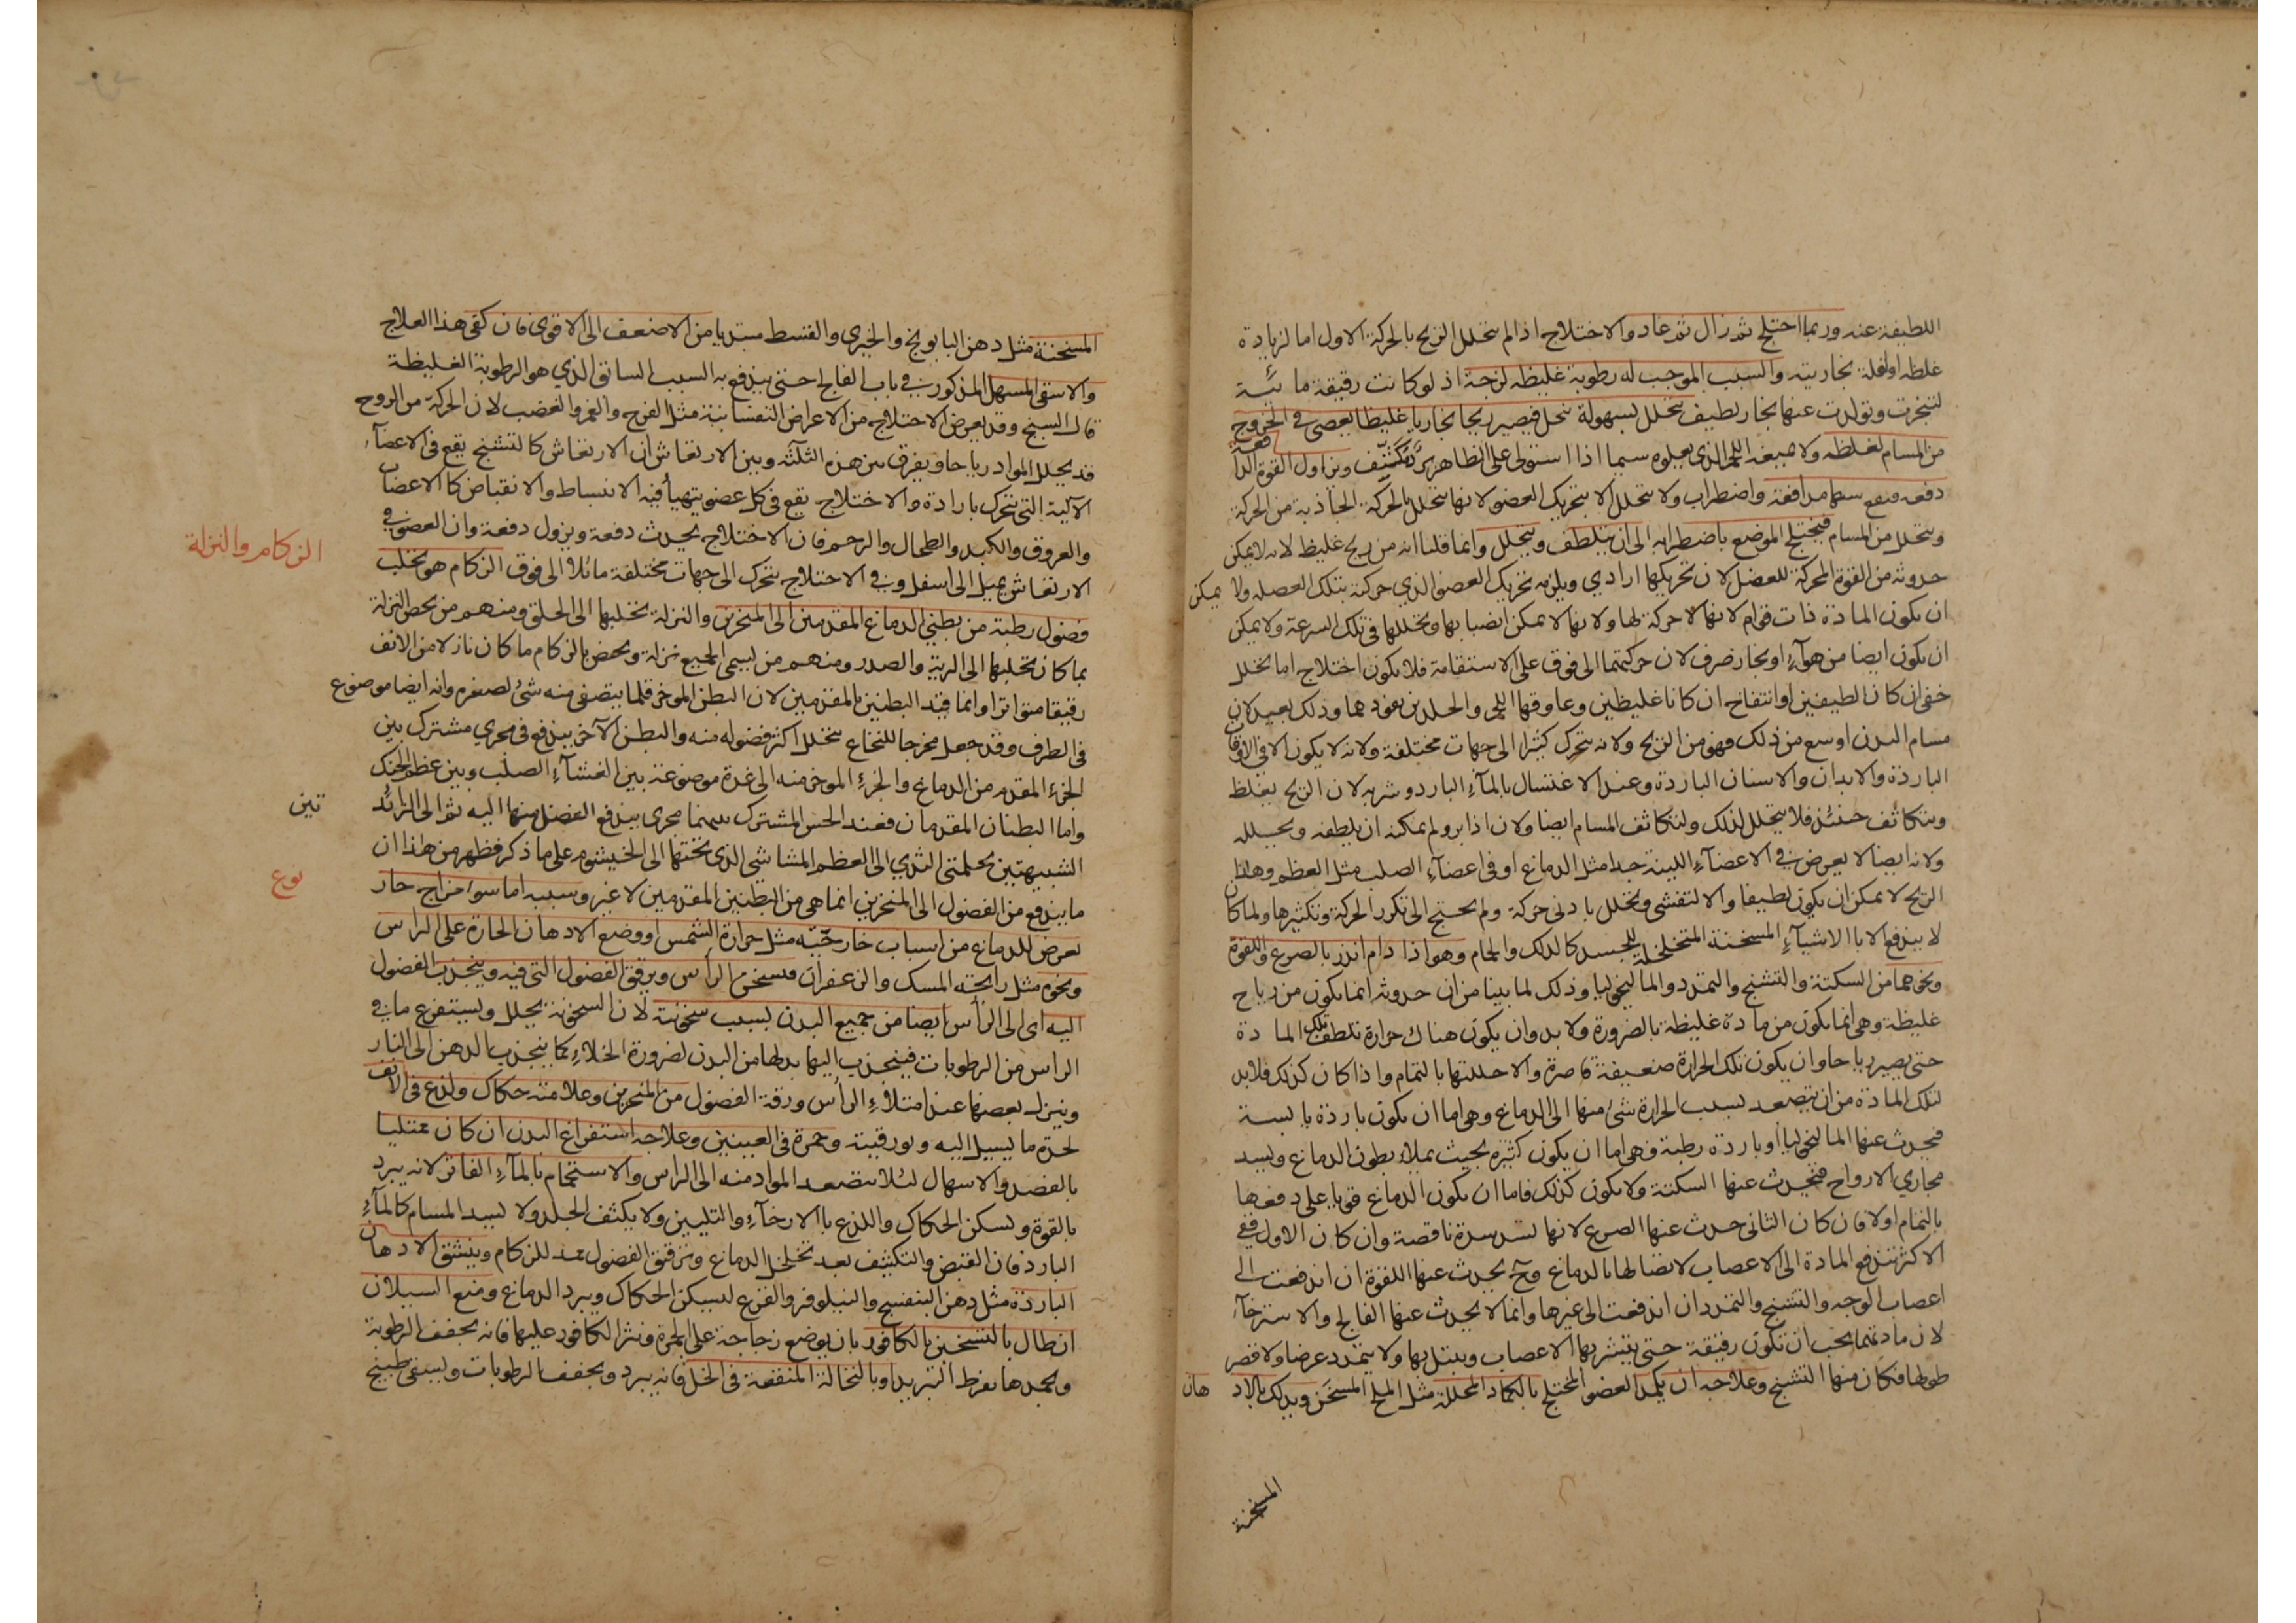 اللطيفة عنه وربما اختلج ثم زال ثم عاد والاختلاج اذا لم يتحلل الريح بالحركة الاول اما لزيادة
غلظه او لقلة بخاريته والسبب الموجب له رطوبة غليظه لزجة اذ لو كانت رقيقة مائية
لتبخرت وتولدت عنها بخار لطيف يتحلل بسهولة تنحل فيصير ريحا بخاريا غليظا يعصى في الخروج
من المسام لغلظه ولا اللحم الذي يعلوه سيما اذا استولى على الظاهر برد مكثف ويزاول القوة الدافعة
دفعه فيقع بينهما مدافعة واضطراب ولا يتحلل الا بتحريك العضو لانها تتحلل بالحركة الجاذبة من الحركة
ويتحلل من المسام فيختلج الموضع باضطرابه الى ان يتلطف ويتحلل وانما قلنا انه من ريح غليظ لانه لا يمكن
حدوثه من القوة المحركة للعضل لان تحريكها ارادي ويلزمه تحريك العضو الذي حركته بتلك العضله ولا يمكن
ان يكون المادة ذات قوام لانها لا حركة لها ولانها لا يمكن انصبابها وتحللها في تلك السرعة ولا يمكن
ان يكون ايضا من هواء او بخار صرف لان حركتهما الى فوق على الاستقامة فلا يكون اختلاج اما تحلل
خفي ان كانا لطيفين او انتفاخ ان كانا غليظين وعاوقها اللحم والجلد من نفوذهما وذلك بعيد لان
مسام البدن اوسع من ذلك فهو من الريح ولانه يتحرك كثيرا الى جهات مختلفة ولانه لا يكون الا في الاوقات
الباردة والابدان والاسنان الباردة وعند الاغتسال بالماء البارد وشربه لان الريح يغلظ
ويتكاثف حينئذ فلا يتحلل لذلك ولتكاثف المسام ايضا ولان اذا برد لم يمكنه ان يلطفه ويحلله
ولانه ايضا لا يعرض في الاعضاء اللينة جدا مثل الدماغ او في اعضاء الصلب مثل العظم وهذا
الريح لا يمكن ان يكون لطيفا والا لتفشى وتحلل بادنى حركة ولم يحتج الى تكرر الحركة وتكثيرها ولما كان
لا يندفع الا بالاشياء المسخنة المتخلخلة للجسد كالدلك والحمام وهو اذا دام انذر بالصرع واللقوة
ونحوهما من السكتة والتشنج والتمدد والماليخوليا وذلك لما بينا من ان حدوثه انما يكون من رياح
غليظة وهي انما يكون من مادة غليظة بالضرورة ولا بد وان يكون هناك حرارة تلطف تلك المادة
حتى يصير رياحا وان يكون تلك الحرارة ضعيفة قاصرة والا حللتها بالتمام واذا كان كذلك فلا بد
لتلك المادة من ان يتصعد بسبب الحرارة شئ منها الى الدماغ وهو اما ان يكون باردة يابسة
فيحدث عنها الماليخوليا او باردة رطبة وهو اما ان يكون كثيرة بحيث يملاء بطون الدماغ ويسد
مجاري الارواح فيحدث عنها السكتة ولا يكون كذلك فاما ان يكون الدماغ قويا على دفعها
بالتمام اولا فان كان الثاني حدث عنها الصرع لانها تسد سدة ناقصة وان كان الاول ففي
الاكثر تندفع المادة الى الاعصاب لاتصالها بالدماغ وح يحدث عنها اللقوة ان اندفعت الى
اعصاب الوجه والتشنج والتمدد ان اندفعت الى غيرها وانما لا يحدث عنها الفالج والاسترخاء
لان مادتهما يجب ان تكون رقيقة حتى يتشربها الاعصاب ويبتل بها ولا يتمدد عرضا ولا قصر
طولها فكان منها التشنج وعلاجه ان يكمد العضو المختلج بالكماد المحللة مثل الملح المسخن ويدلك بالادهان
المسخنة
المسخنة مثل دهن البابونج والخيري والقسط مبتديا من الاضعف الى الاقوى فان كفى هذا العلاج
والا سقى المسهل المذكور في باب الفالج حتى يندفع به السبب السابق الذي هو الرطوبة الغليظة
قال الشيخ وقد يعرض الاختلاج من الاعراض النفسانية مثل الفرح والغم والغضب لان الحركة من الروح
قد يحلل المواد رياحا ويفرق بين هذه الثلثة وبين الارتعاش ان الارتعاش كالتشنج يقع في الاعضاء
الآلية التي تتحرك بارادة والاختلاج يقع في كل عضو يتهيأ فيه الانبساط والانقباض كالاعصاب
والعروق والكبد والطحال والرحم فان الاختلاج يحدث دفعة ويزول دفعة وان العضو في
الارتعاش يميل الى اسفل وفي الاختلاج يتحرك الى جهات مختلفة مائلا الى فوق الزكام هو تحلب
الزكام والنزلة
فضول رطبة من بطني الدماغ المقدمين الى المنخرين والنزلة تحلبها الى الحلق ومنهم من يخص النزلة
بما كان تحلبها الى الرية والصدر ومنهم من يسمى الجميع نزلة ويخص بالزكام ما كان نازلا من الانف
رقيقا متواترا وانما قيد البطنين بالمقدمين لان البطن الموخر قلما يتصفى منه شئ لصغره وانه ايضا موضوع
في الطرف وقد جعل مخرجا للنخاع يتحلل اكثر فضوله منه والبطن الآخر يندفع في مجري مشترك بين
الجزء المقدم من الدماغ والجزء الموخر منه الى غدة موضوعة بين الغشاء الصلب وبين عظم الحنك
واما البطنان المقدمان فعند الحس المشترك بينهما مجرى يندفع الفضل منها اليه ثم الى الزائدتين
الشبيهتين بحلمتي الثدي الى العظم المشاشي الذي تحتها الى الخيشوم على ما ذكر فظهر من هذا ان
ما يندفع من الفضول الى المنخرين انما هي من البطنين المقدمين لا غير وسببه اما سوء مزاج حار
نوع
يعرض للدماغ من اسباب خارجية مثل حرارة الشمس او وضع الادهان الحارة على الراس
ونحوه مثل رايحة المسك والزعفران فيسخن الرأس ويرقق الفضول التي فيه وينجذب الفضول
اليه اى الى الرأس ايضا من جميع البدن بسبب سخونته لان السخونة يحلل ويستفرغ ما في
الراس من الرطوبات فينجذب اليها بدلها من البدن لضرورة الخلاء كما ينجذب الدهن الى النار
وينزل بعضها عند امتلاء الرأس ورقة الفضول من المنخرين وعلامته حكاك ولذع في الانف
لحدة ما يسيل اليه وبورقيته وحمرة في العينين وعلاجه استفراغ البدن ان كان ممتليا
بالفصد والاسهال لئلا يتصعد المواد منه الى الراس والاستحمام بالماء الفاتر لانه يبرد
بالقوة ويسكن الحكاك واللذع بالارخاء والتليين ولا يكثف الجلد ولا يسد المسام كالماء
البارد فان القبض والتكثيف بعد تخلخل الدماغ وترقيق الفضول ممد للزكام وينشق الادهان
الباردة مثل دهن البنفسج والنيلوفر والقرع ليسكن الحكاك ويبرد الدماغ ومنع السيلان
ان طال بالتسخين بالكافور بان يوضع زجاجة على الجمرة ونثر الكافور عليها فانه يجفف الرطوبة
ويجمدها بفرط التبريد او بالنخالة المنقعة في الخل فانه يبرد ويجفف الرطوبات ويسقى طبيخ